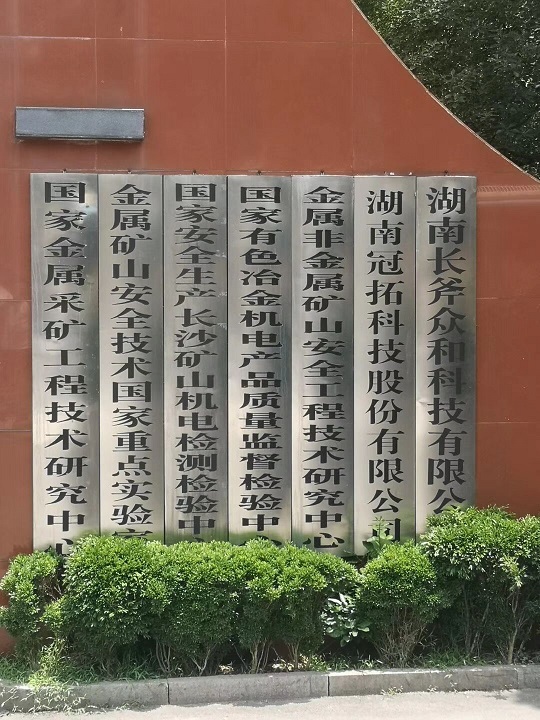 国家金属采矿工程技术研究中心
金属矿山安全技术国家重点实验室
国家安全生产长沙矿山机电检测检验中心
国家有色冶金机电产品质量监督检验中心
金属非金属矿山安全工程技术研究中心
湖南冠拓科技股份有限公司
湖南长斧众和科技有限公